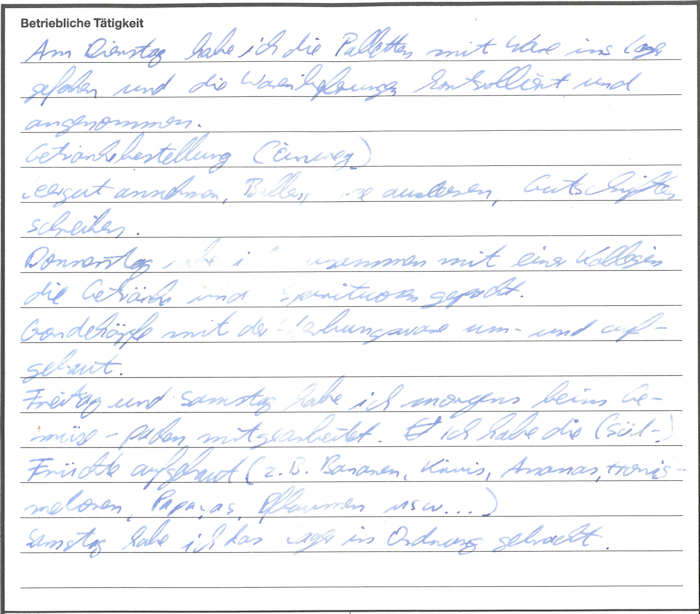 Betriebliche Tätigkeit
Am Dienstag habe ich die Palletten mit Ware ins Lager
gefahren und die Warenlieferungen kontrolliert und
angenommen.
Getränkebestellung (Einweg)
Leergut annehmen, ausleeren, Gutschriften
schreiben.
Donnerstag habe ich zusammen mit einer Kollegin
die Getränke und Spirituosen gepackt.
Gondelköpfe mit der Werbungsware um- und auf-
gebaut.
Freitag und Samstag habe ich morgens beim Ge-
müse-packen mitgearbeitet. Ich habe die (Süd-)
Früchte aufgebaut (z.B. Bananen, Kiwis, Ananas, Honig-
melonen, Papayas, Pflaumen usw...)
Samstag habe ich das Lager in Ordnung gebracht.